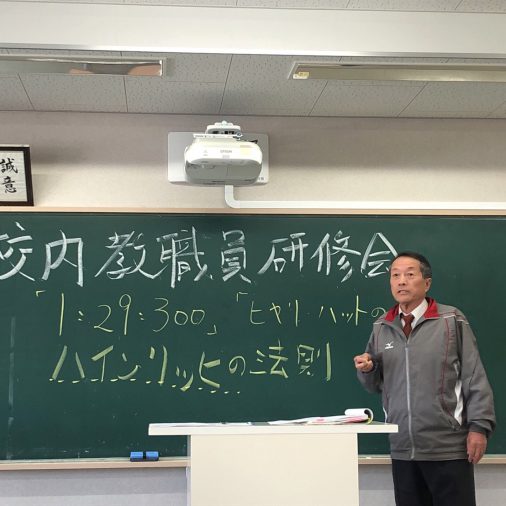 誠意
EPSON
校内教職員研修会
「1:29:300」「ヒヤリ・ハットの
ハインリッヒの法則
MIZUNO